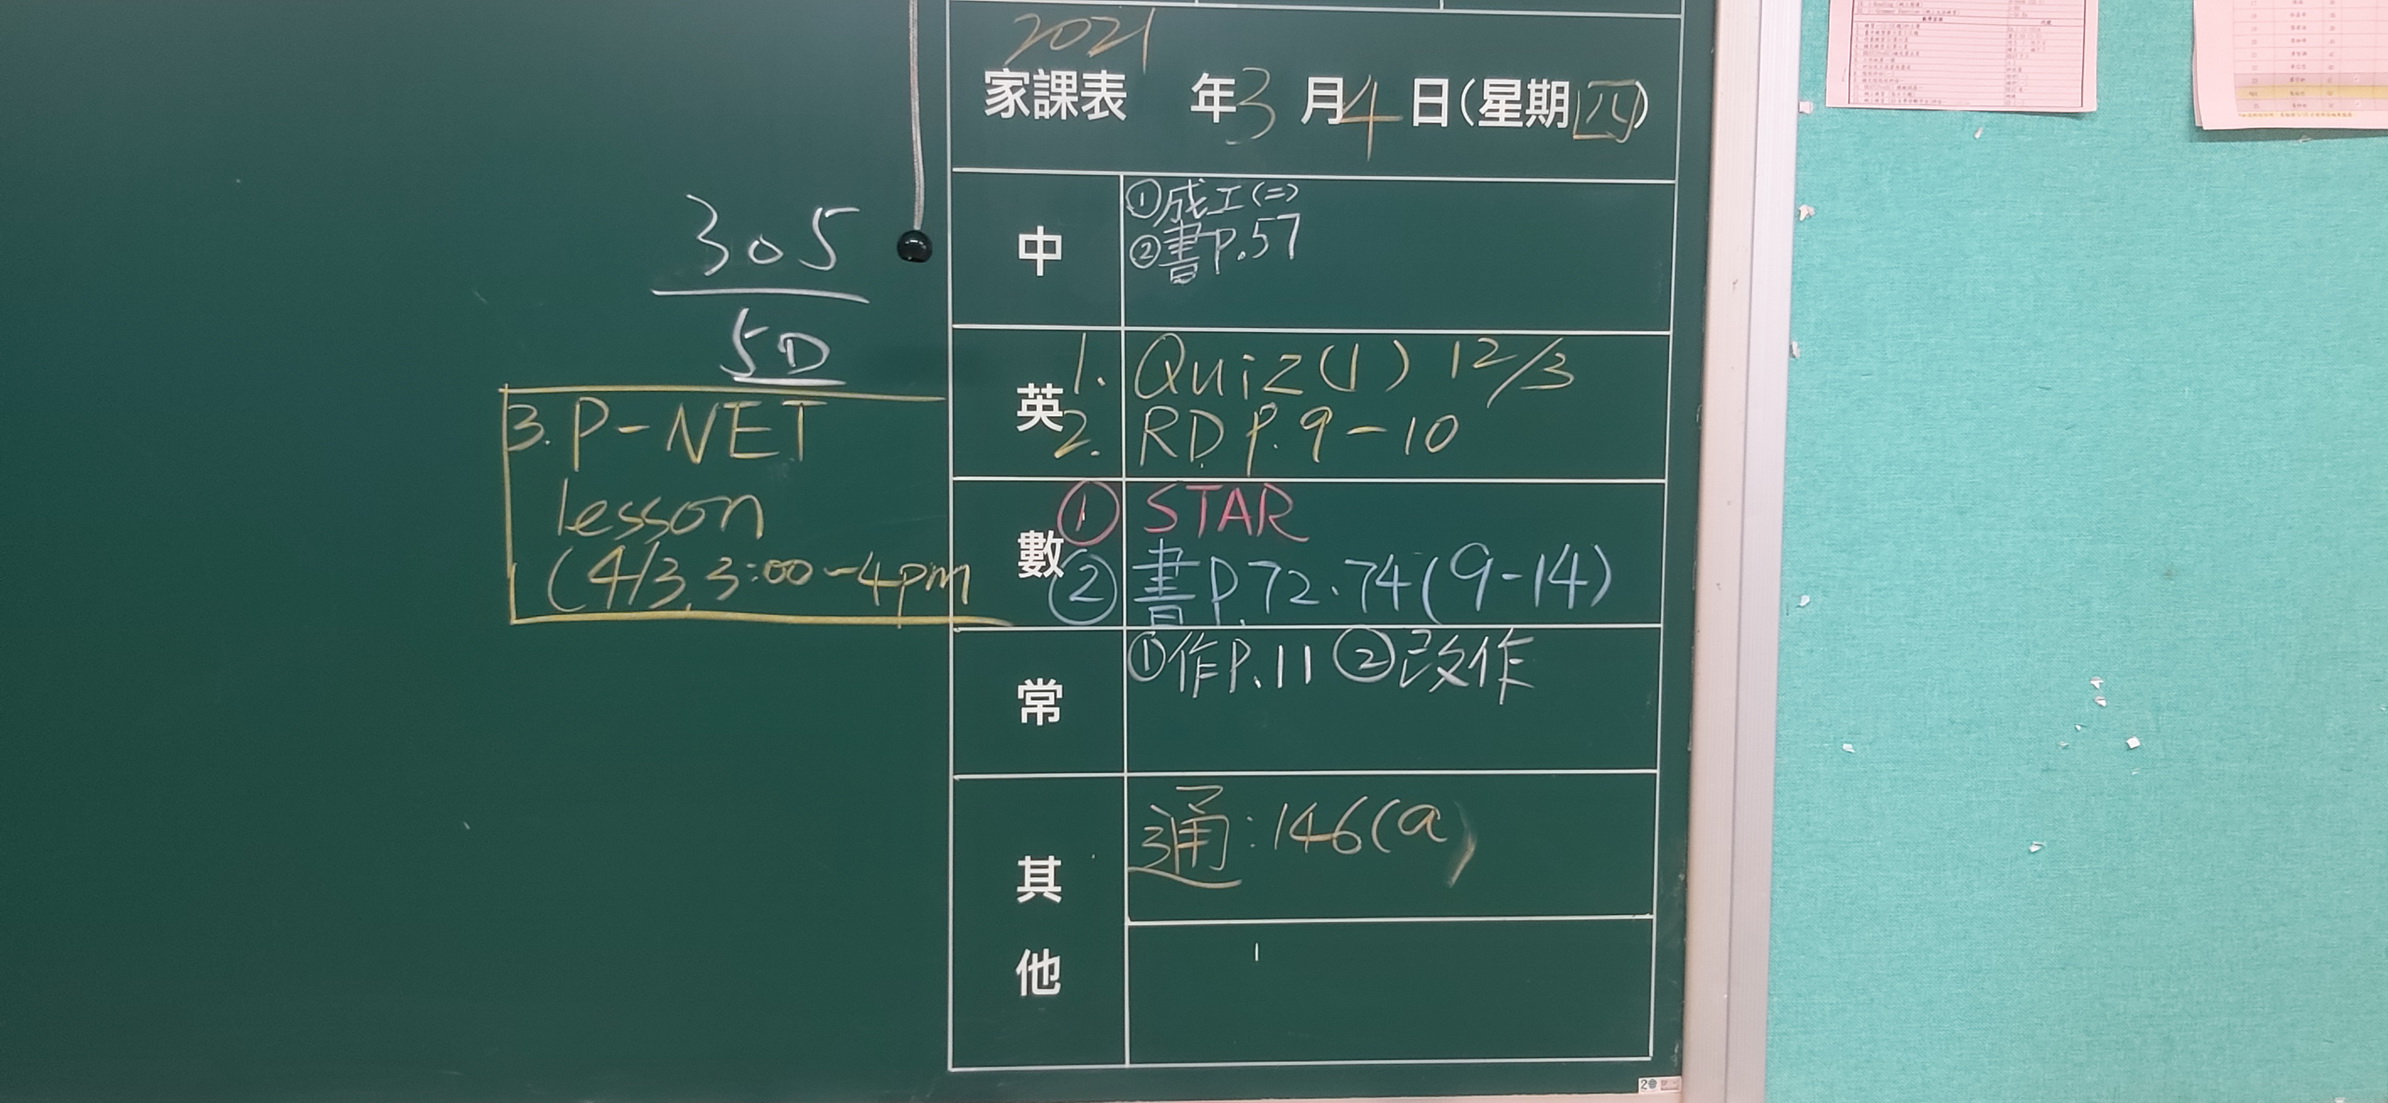 2021
家課表 年3月4日(星期四)
305
5D
中
①成工(二)
②書P.57
英
1. Quiz(1) 12/3
2. RD P.9-10
3. P-NET
lesson
(4/3, 3:00-4pm
數
① STAR
② 書P.72、74(9-14)
常
①作P.11 ②改作
其他
通:146(a)